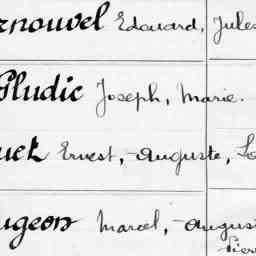 rnouvel Edouard, Jules
Pludic Joseph, Marie.
uet Ernest, Auguste, Lo
ugeon Marcel, August
Pierr